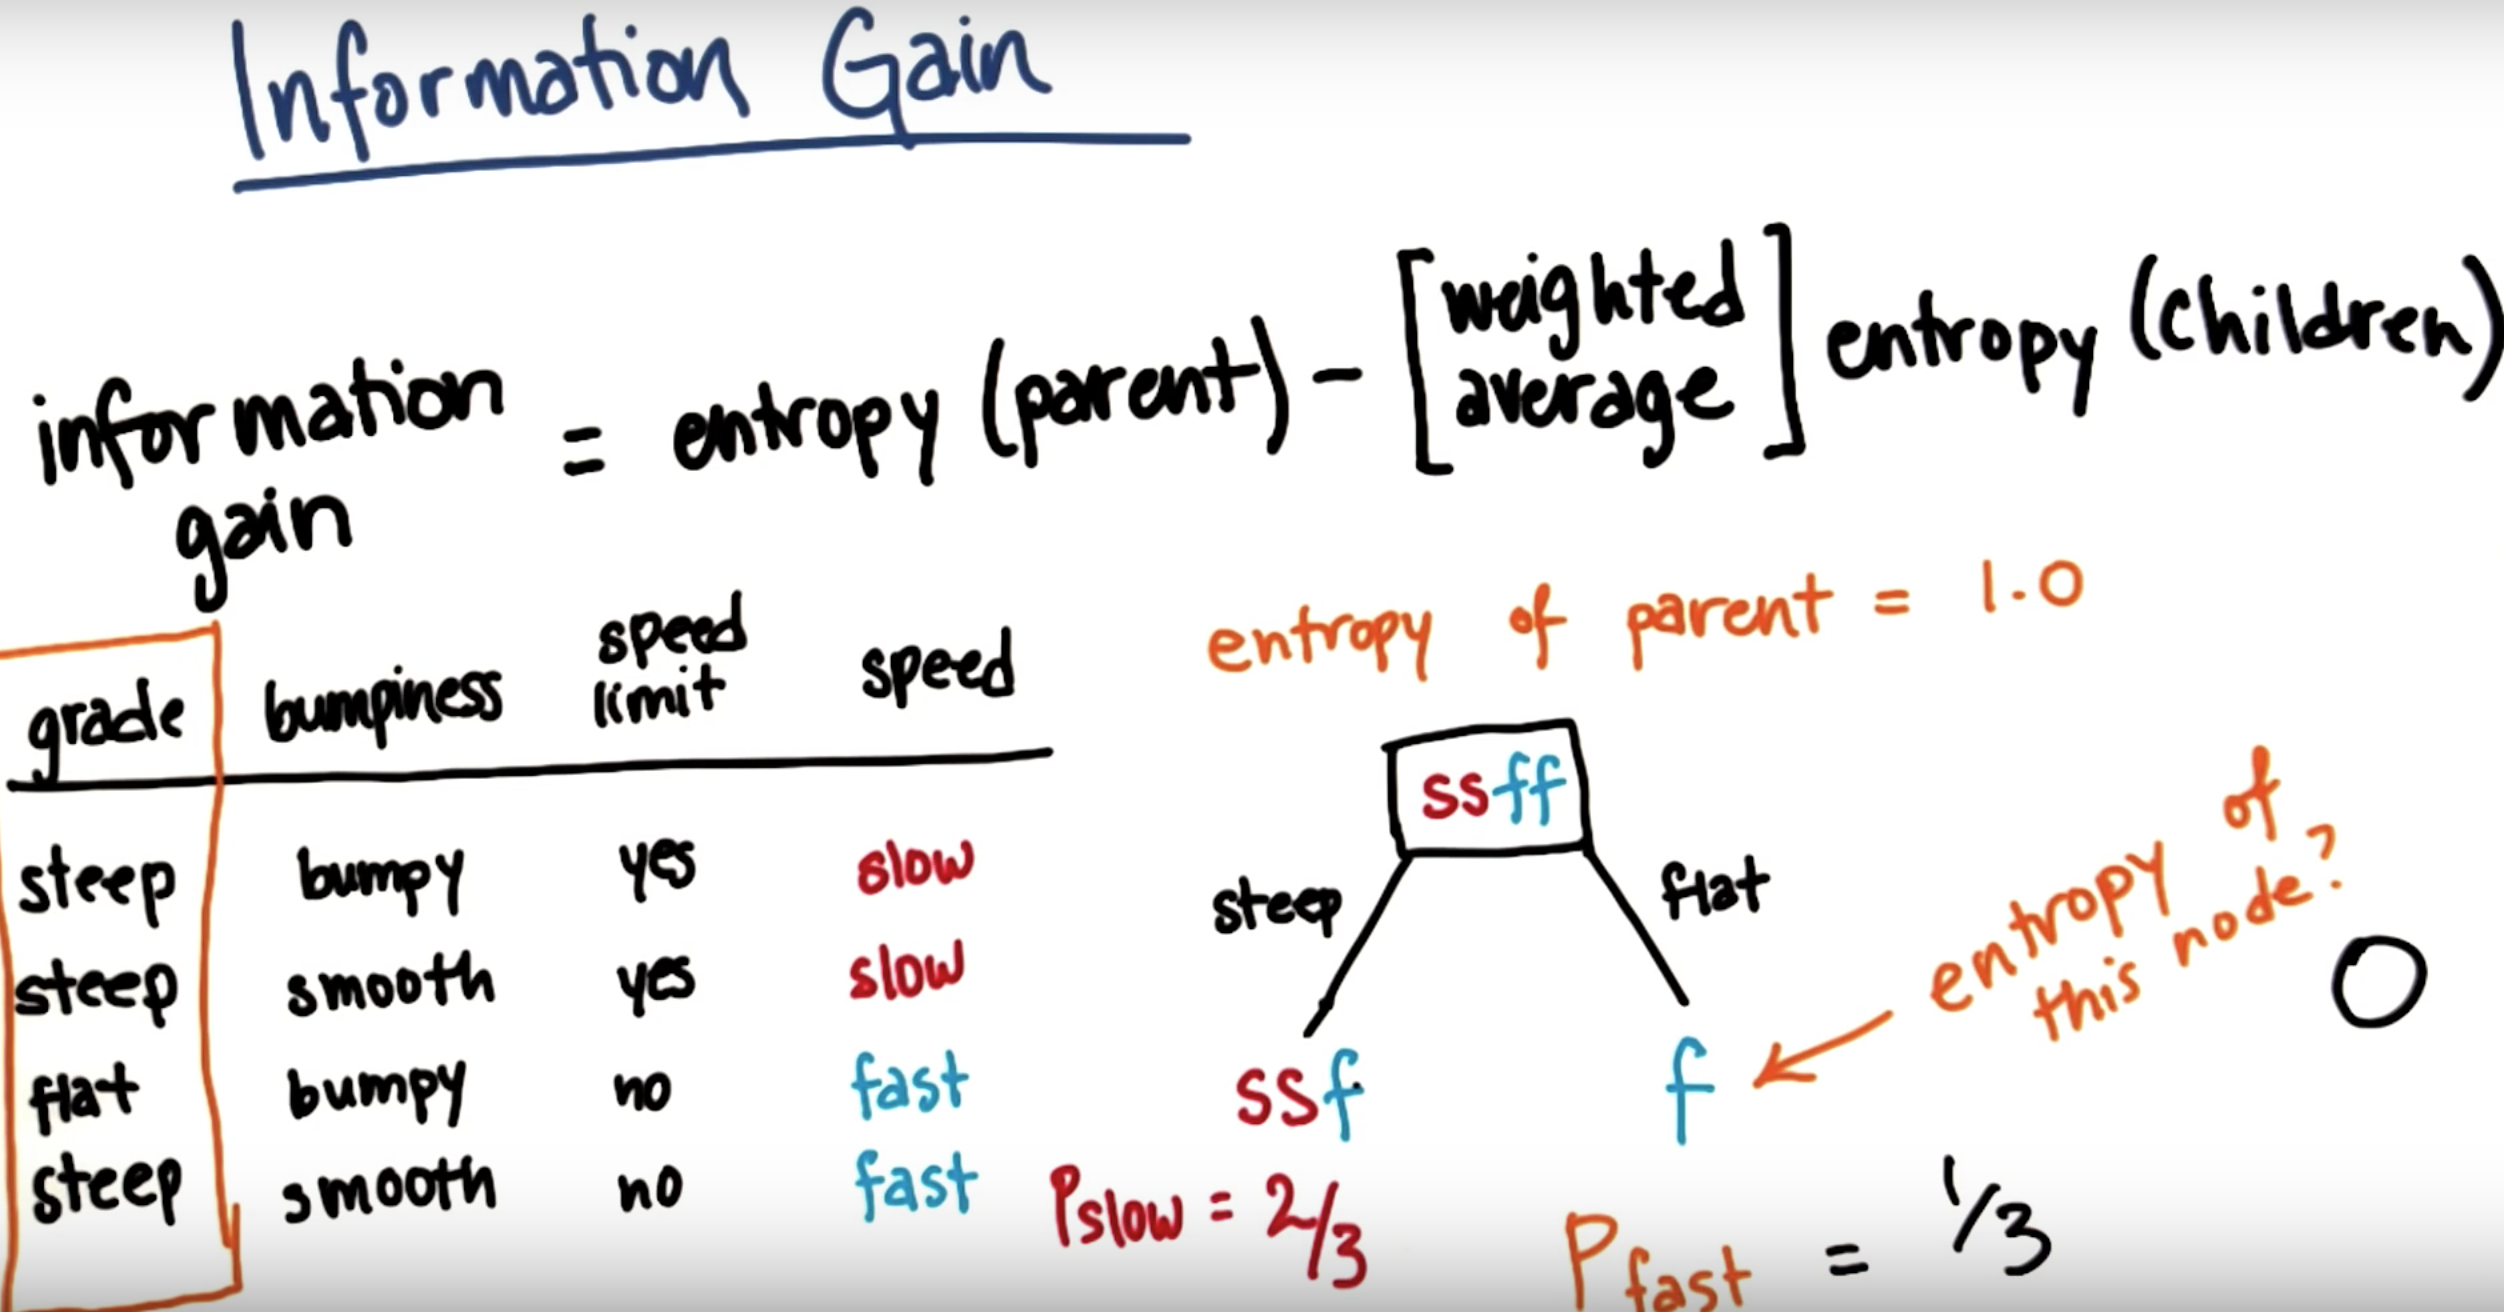 Information Gain
information gain = entropy (parent) - [weighted average] entropy (children)
entropy of parent = 1.0
grade bumpiness speed limit speed
steep bumpy yes slow
steep smooth yes slow
flat bumpy no fast
steep smooth no fast
ssff
steep flat
ssf f
entropy of this node?
0
Pslow = 2/3
Pfast = 1/3